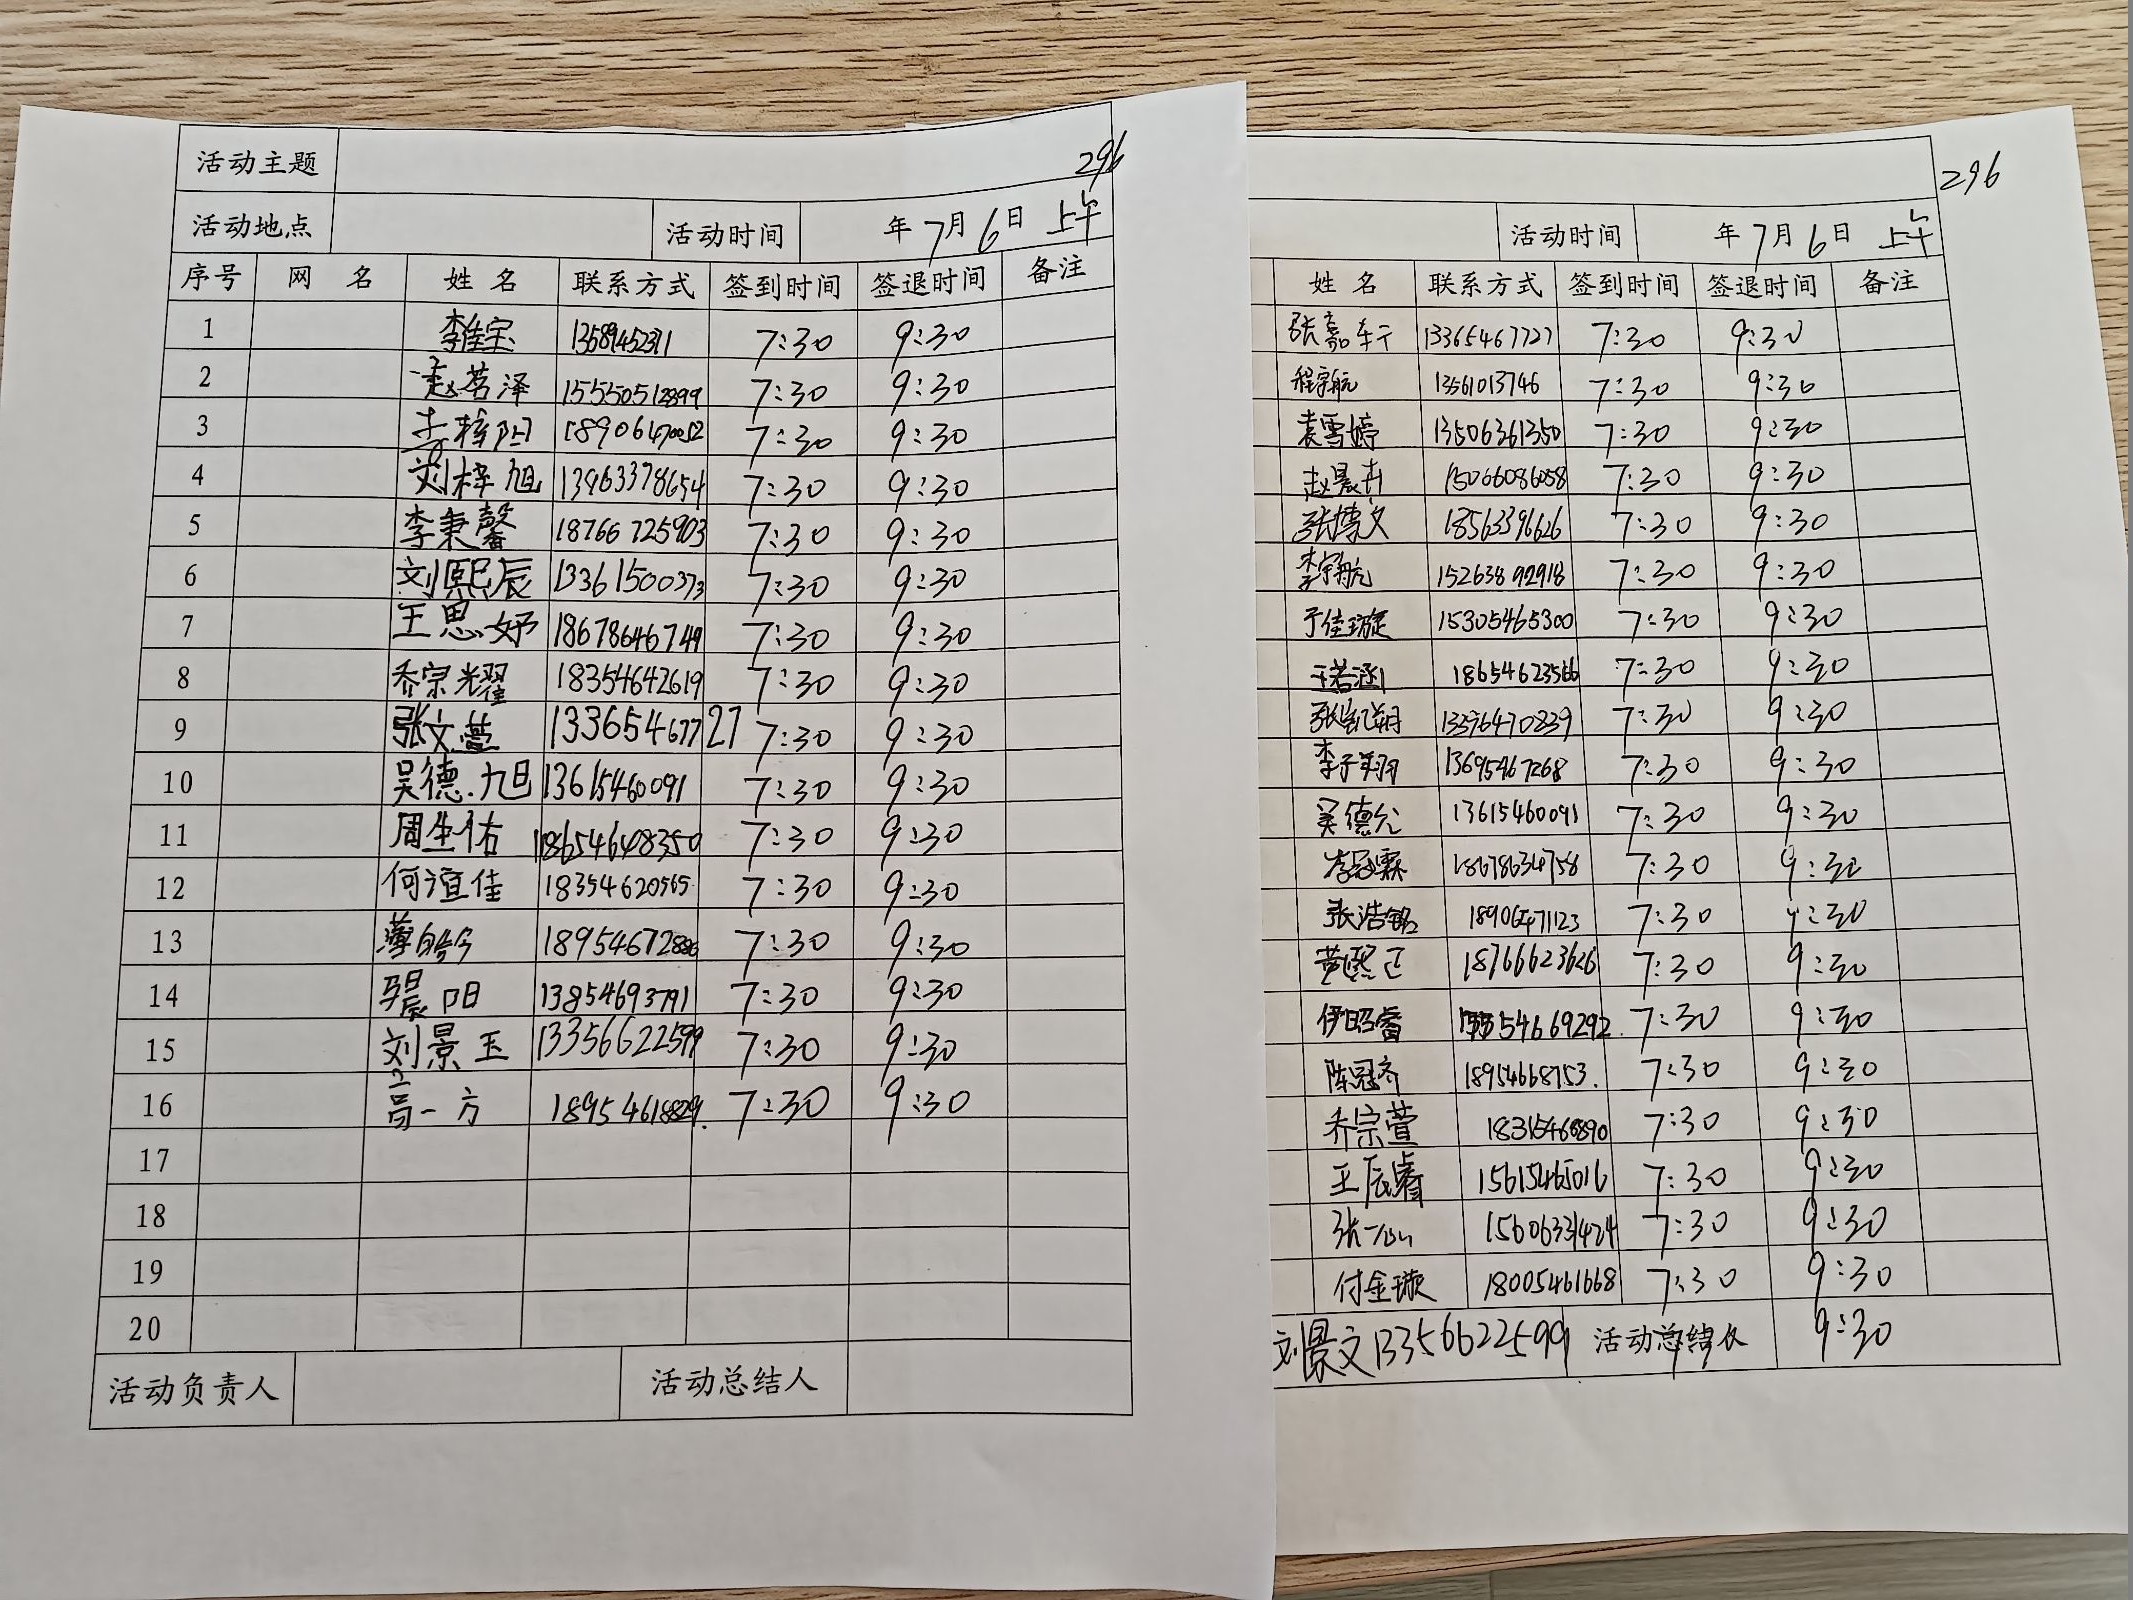 活动主题 296
活动地点 活动时间 年7月6日 上午
序号 网 名 姓 名 联系方式 签到时间 签退时间 备注
1 李佳宝 7:30 9:30
2 赵茗泽 15550512899 7:30 9:30
3 李梓阳 18906470052 7:30 9:30
4 刘梓旭 13963378654 7:30 9:30
5 李秉馨 18766725903 7:30 9:30
6 刘熙辰 13361500373 7:30 9:30
7 王思妤 18678646749 7:30 9:30
8 乔宗耀 18354642619 7:30 9:30
9 张文萱 13365467727 7:30 9:30
10 吴德旭 13615460091 7:30 9:30
11 周生佑 18654648350 7:30 9:30
12 何谊佳 18354620565 7:30 9:30
13 薄 18954672886 7:30 9:30
14 阳 13854693791 7:30 9:30
15 刘景玉 13356622599 7:30 9:30
16 高一方 18954618829. 7:30 9:30
17
18
19
20
活动负责人 活动总结人
296
活动时间 年7月6日 上午
姓 名 联系方式 签到时间 签退时间 备注
张嘉轩 13365467727 7:30 9:30
程宇航 13561013746 7:30 9:30
袁雪婷 13506361350 7:30 9:30
赵晨卉 15066086058 7:30 9:30
张博文 18563396626 7:30 9:30
李宇航 15263892918 7:30 9:30
于佳璇 15305465300 7:30 9:30
王若涵 18654623566 7:30 9:30
张凯翔 13396470839 7:30 9:30
李子翔 13695467268 7:30 9:30
吴德允 13615460091 7:30 9:30
李冠霖 18678634758 7:30 9:30
张浩铭 18906471123 7:30 9:30
黄熙正 18766623626 7:30 9:30
伊昭睿 7:30 9:30
陈冠齐 18954668753. 7:30 9:30
乔宗萱 18315460890 7:30 9:30
王辰睿 15615465016 7:30 9:30
张一 15606331424 7:30 9:30
付金璇 18005461668 7:30 9:30
刘景文 13356622599 活动总结人 9:30